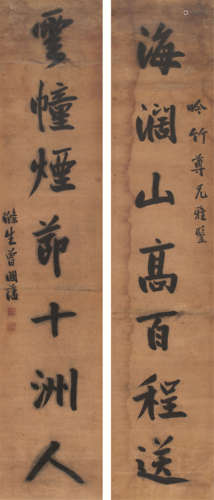 海濶山高百程送
吟竹尊兄雅鑒
雲幢煙節十洲人
滌生曾國藩